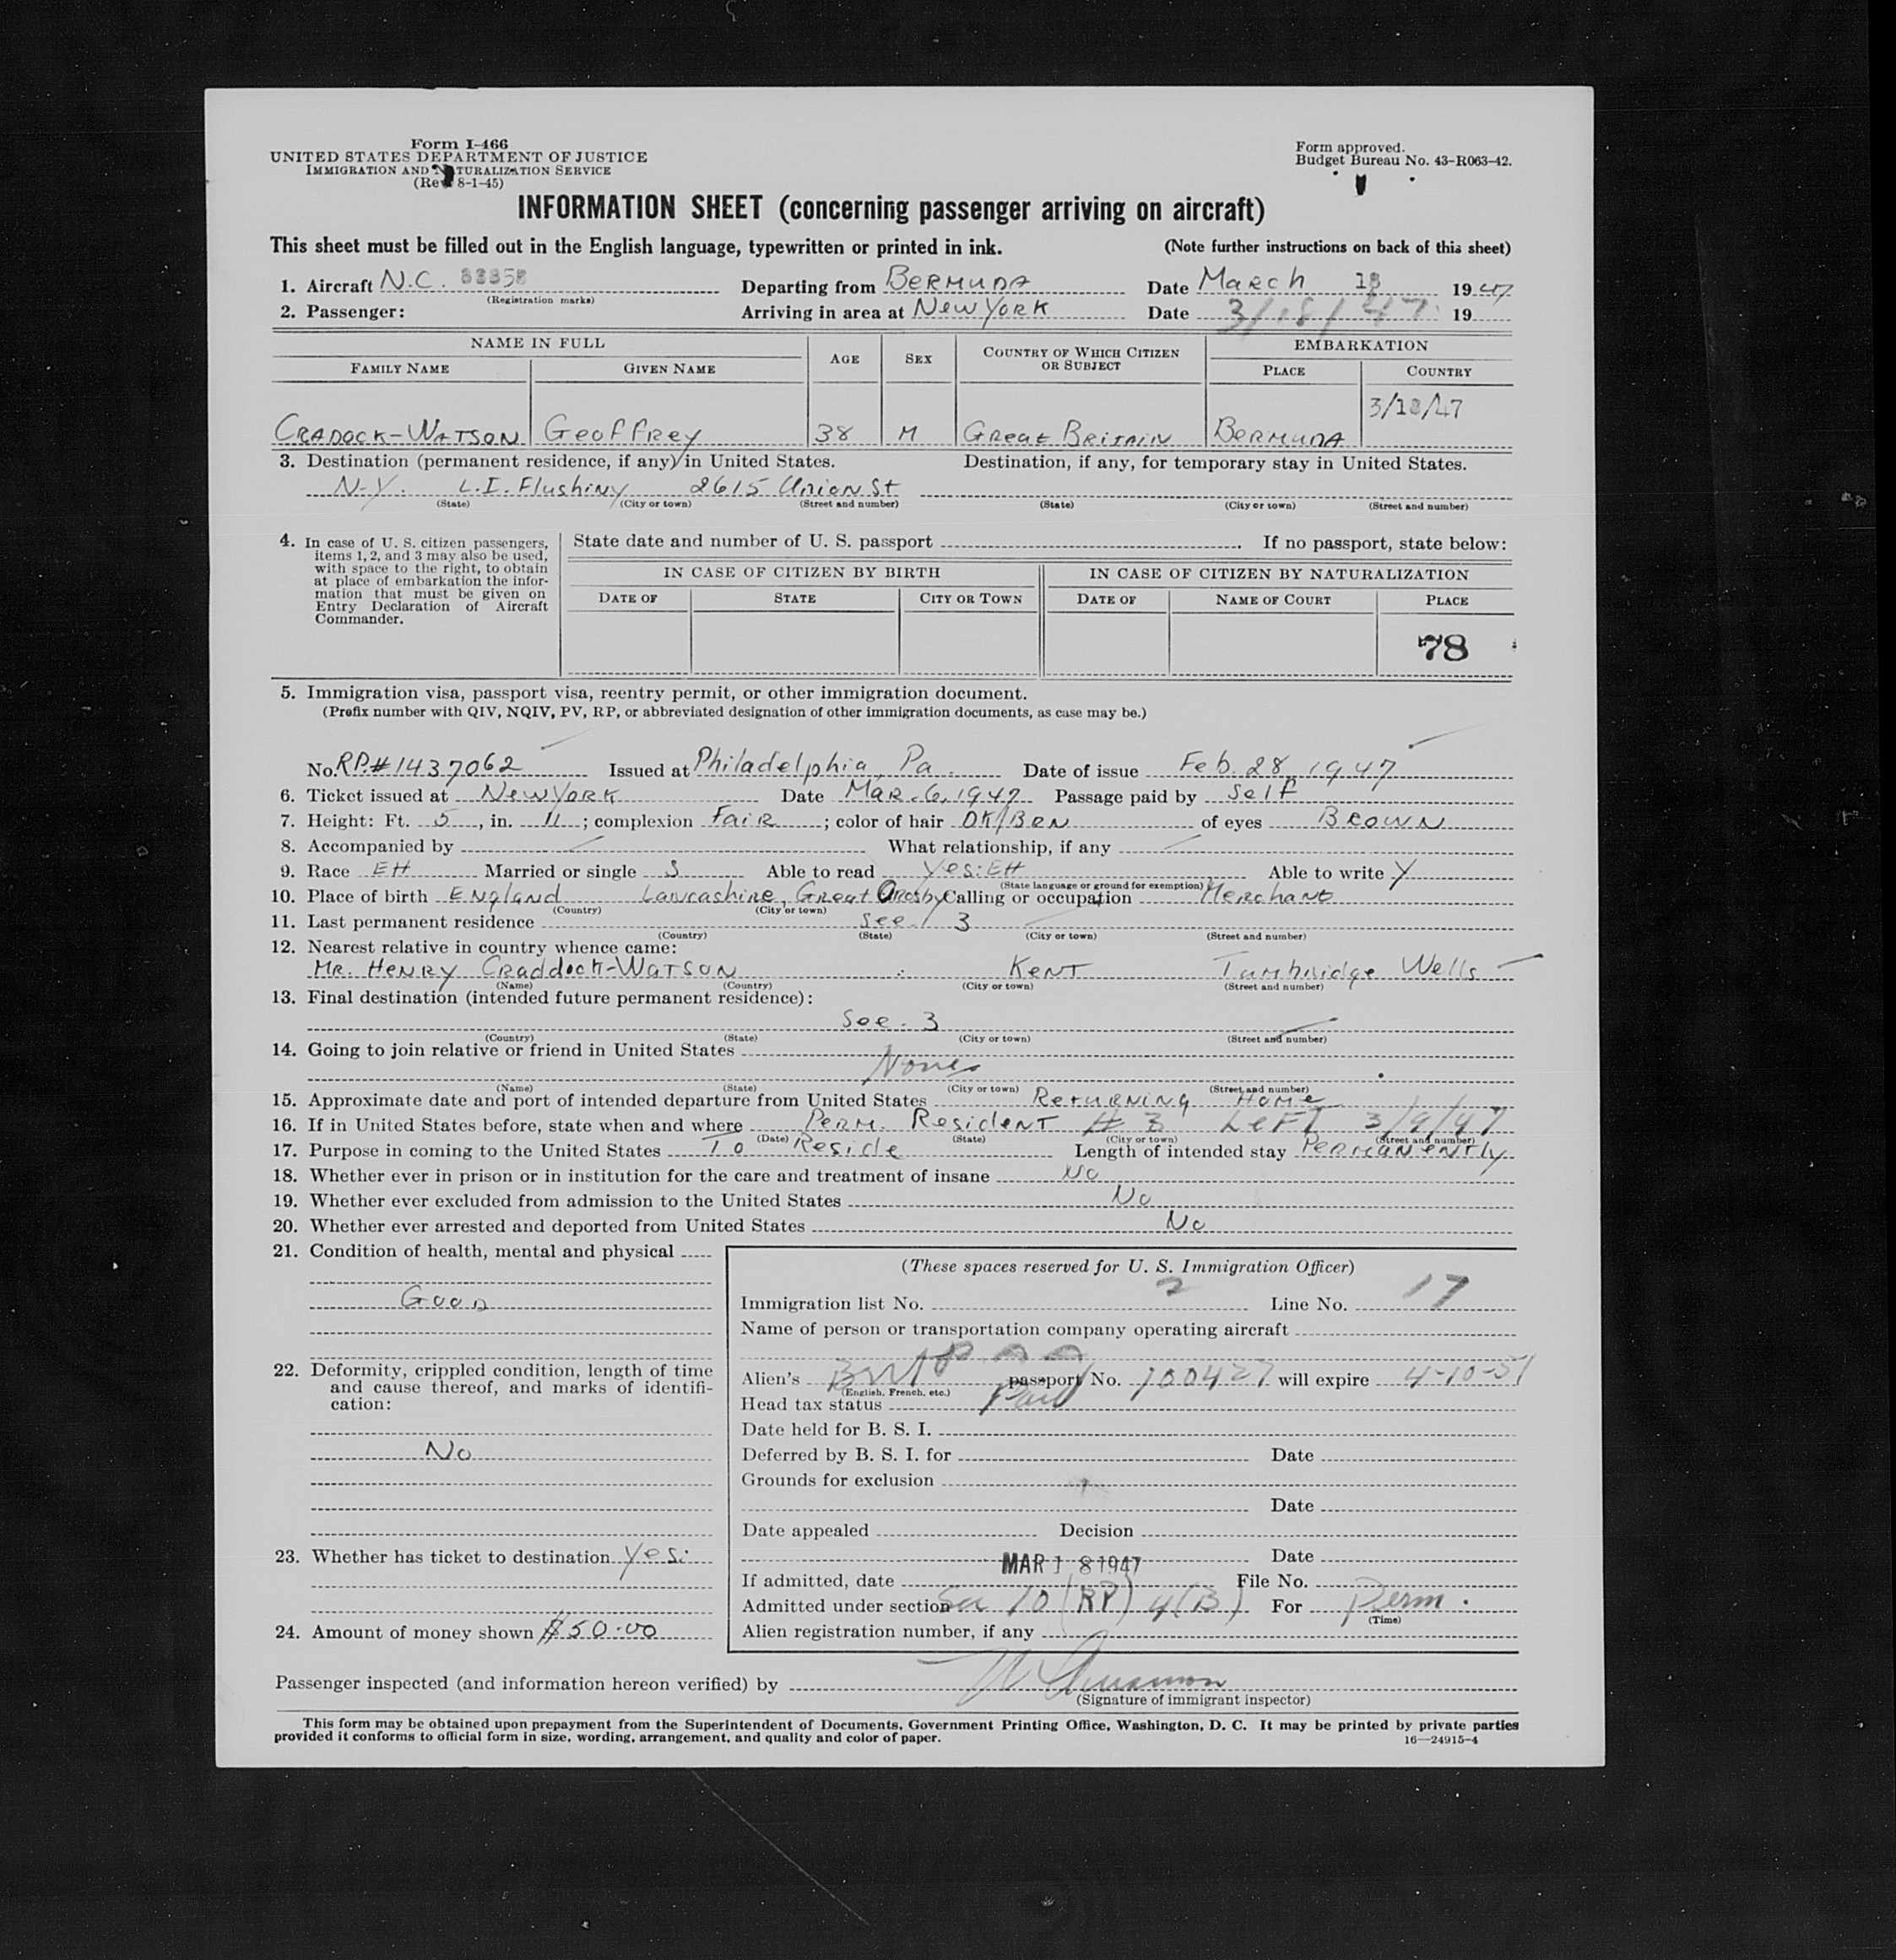 Form I-466
UNITED STATES DEPARTMENT OF JUSTICE
IMMIGRATION AND NATURALIZATION SERVICE
(Rev 8-1-45)
Form approved.
Budget Bureau No. 43-R063-42.
INFORMATION SHEET (concerning passenger arriving on aircraft)
This sheet must be filled out in the English language, typewritten or printed in ink. (Note further instructions on back of this sheet)
1. Aircraft N.C. (Registration marks) Departing from BERMUDA Date March 18 1947
2. Passenger: Arriving in area at New York Date 3/18/47 19
NAME IN FULL AGE SEX COUNTRY OF WHICH CITIZEN OR SUBJECT EMBARKATION
FAMILY NAME GIVEN NAME PLACE COUNTRY
3/18/47
CRADOCK-WATSON GeoFFRey 38 M Great Britain BERMUDA
3. Destination (permanent residence, if any) in United States. Destination, if any, for temporary stay in United States.
N.Y. L.I. Flushing 2615 Union St
(State) (City or town) (Street and number) (State) (City or town) (Street and number)
4. In case of U. S. citizen passengers, items 1, 2, and 3 may also be used, with space to the right, to obtain at place of embarkation the information that must be given on Entry Declaration of Aircraft Commander.
State date and number of U. S. passport . If no passport, state below:
IN CASE OF CITIZEN BY BIRTH IN CASE OF CITIZEN BY NATURALIZATION
DATE OF STATE CITY OR TOWN DATE OF NAME OF COURT PLACE
78
5. Immigration visa, passport visa, reentry permit, or other immigration document.
(Prefix number with QIV, NQIV, PV, RP, or abbreviated designation of other immigration documents, as case may be.)
No. RP.#1437062 Issued at Philadelphia, Pa. Date of issue Feb. 28, 1947
6. Ticket issued at New York Date Mar. 6, 1947 Passage paid by Self
7. Height: Ft. 5, in. 11; complexion Fair; color of hair DK/BRN of eyes Brown
8. Accompanied by What relationship, if any
9. Race EH Married or single S Able to read Yes: EH Able to write Y
(State language or ground for exemption)
10. Place of birth England Lancashire, Great Crosby Calling or occupation Merchant
(Country) (City or town)
11. Last permanent residence See 3
(Country) (State) (City or town) (Street and number)
12. Nearest relative in country whence came:
MR. HENRY Craddock-Watson KENT Tumbridge Wells
(Name) (Country) (City or town) (Street and number)
13. Final destination (intended future permanent residence):
See. 3
(Country) (State) (City or town) (Street and number)
14. Going to join relative or friend in United States
None
(Name) (State) (City or town) (Street and number)
15. Approximate date and port of intended departure from United States Returning Home
16. If in United States before, state when and where Perm. Resident # 3 LeFT 3/9/47
(Date) (State) (City or town) (Street and number)
17. Purpose in coming to the United States To Reside Length of intended stay Permanently
18. Whether ever in prison or in institution for the care and treatment of insane No
19. Whether ever excluded from admission to the United States No
20. Whether ever arrested and deported from United States No
21. Condition of health, mental and physical
Good
22. Deformity, crippled condition, length of time and cause thereof, and marks of identification:
No
23. Whether has ticket to destination Yes.
24. Amount of money shown $50.00
(These spaces reserved for U. S. Immigration Officer)
Immigration list No. 2 Line No. 17
Name of person or transportation company operating aircraft
Alien's Brit passport No. 100427 will expire 4-10-51
(English, French, etc.)
Head tax status Paid
Date held for B. S. I.
Deferred by B. S. I. for Date
Grounds for exclusion
Date
Date appealed Decision
Date
If admitted, date MAR 18 1947 File No.
Admitted under section Sec 10 (RP) 4(B) For Perm.
(Time)
Alien registration number, if any
Passenger inspected (and information hereon verified) by
(Signature of immigrant inspector)
This form may be obtained upon prepayment from the Superintendent of Documents, Government Printing Office, Washington, D. C. It may be printed by private parties
provided it conforms to official form in size, wording, arrangement, and quality and color of paper.
16—24915-4